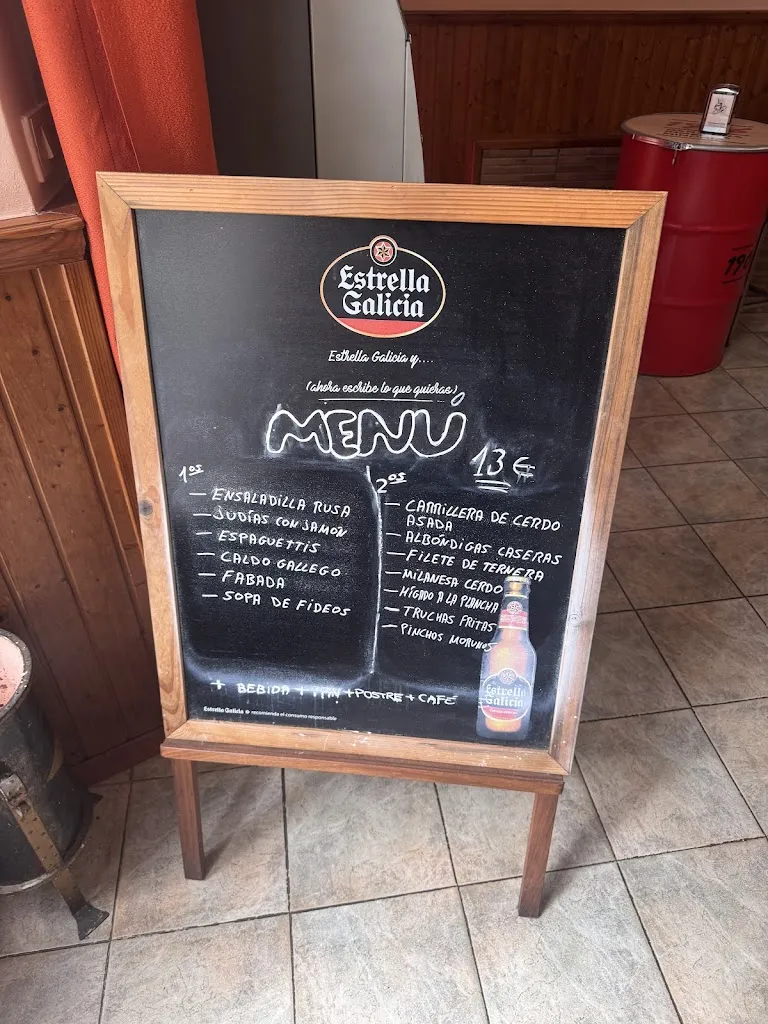 Estrella
Galicia
Estrella Galicia y....
(ahora escribe lo que quieras)
MENÚ
13 €
1os
— ENSALADILLA RUSA
— JUDÍAS CON JAMÓN
— ESPAGUETTIS
— CALDO GALLEGO
— FABADA
— SOPA DE FIDEOS
2os
— CARRILLERA DE CERDO
ASADA
— ALBÓNDIGAS CASERAS
— FILETE DE TERNERA
— MILANESA CERDO
— HÍGADO A LA PLANCHA
— TRUCHAS FRITAS
— PINCHOS MORUNOS
+ BEBIDA + PAN + POSTRE + CAFÉ
Estrella Galicia recomienda el consumo responsable
Estrella
Galicia
190